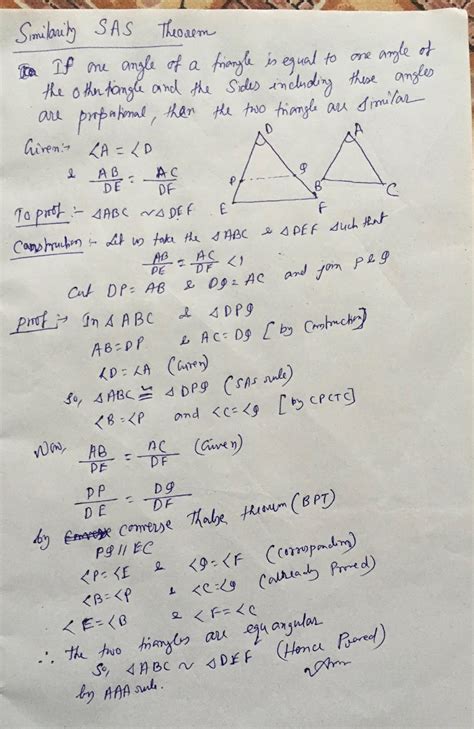 Similarity SAS Theorem
If one angle of a triangle is equal to one angle of
the other tangle and the sides including these angles
are propational, then the two triangle are similar
Given:- ∠A = ∠D
& AB/DE = AC/DF
D
P
Q
E
F
A
B
C
To prof:- ΔABC ~ ΔDEF
Construction:- Let us take the ΔABC & ΔDEF such that
AB/DE = AC/DF < 1
Cut DP = AB & DQ = AC and join P & Q
Proof:→ In ΔABC & ΔDPQ
AB = DP & AC = DQ [by Construction]
∠D = ∠A (Given)
So, ΔABC ≅ ΔDPQ (SAS rule)
∠B = ∠P and ∠C = ∠Q [by CPCTC]
Now, AB/DE = AC/DF (Given)
DP/DE = DQ/DF
by converse Thalse theorem (BPT)
PQ || EC
∠P = ∠E & ∠Q = ∠F (Corrosponding)
∠B = ∠P & ∠C = ∠Q (already Proved)
∠E = ∠B & ∠F = ∠C
∴ the two triangles are equangular
So, ΔABC ~ ΔDEF (Hence Proved)
by AAA rule.